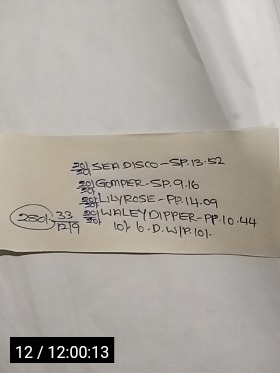 20/20 SEA DISCO-SP.13.52
20/20 GOMPER-SP.9.16
20/20 LILYROSE-PP.14.09
280/- 33/12/9 20/20 WALEY DIPPER-PP.10.44
10/- 6.D.W/P.10/-
12 / 12:00:13